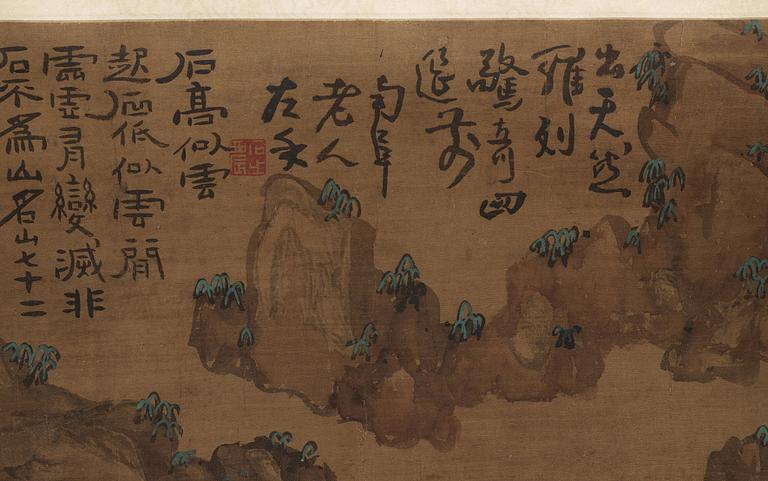 出天然
羅列
驚奇四
筵前
南阜
老人
左手
石高似雲
起石低似雲
需雲有變滅非
石不為山名山七十二